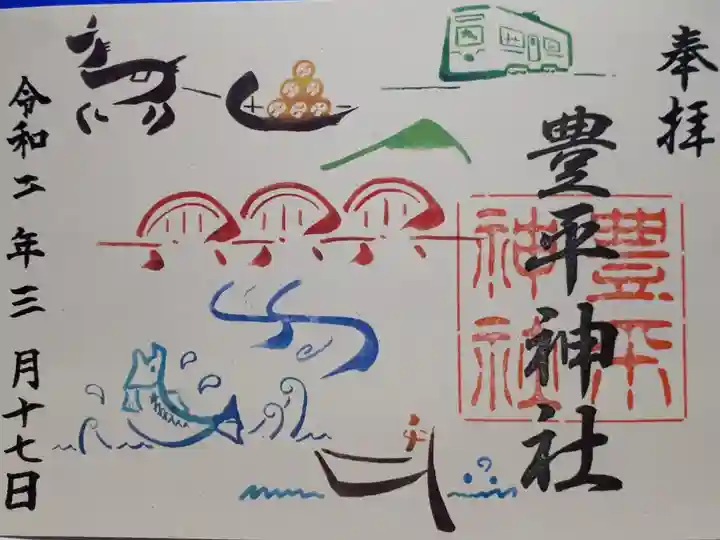 奉拝
豊平神社
豊平
神社
令和二年三月十七日